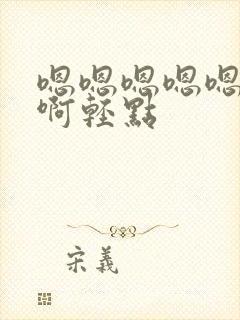 嗯嗯嗯嗯嗯
啊轻點
宋義